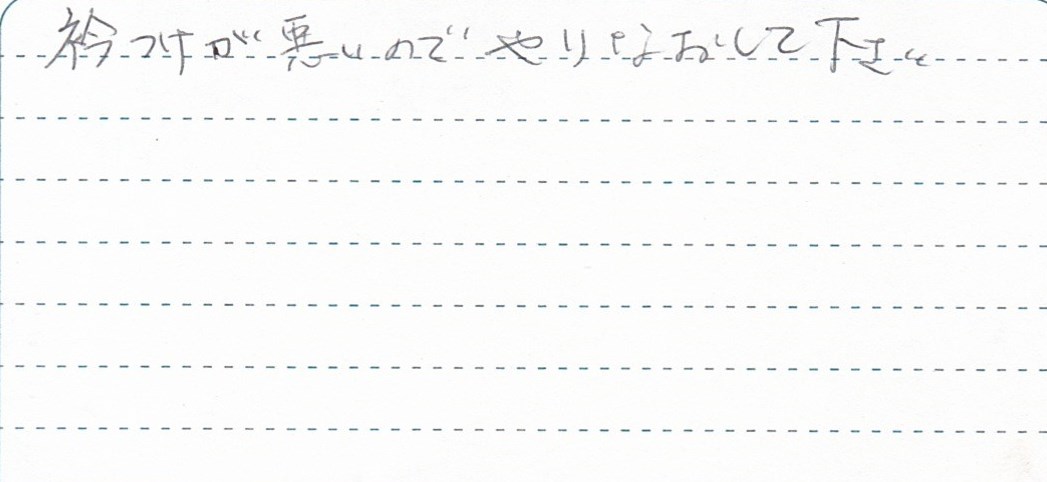 衿つけが悪いのでやりなおして下さい